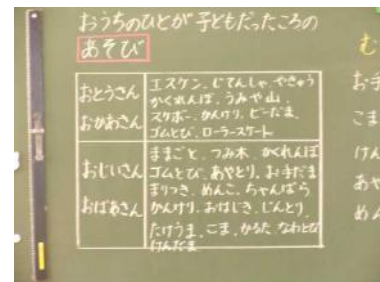 おうちのひとが子どもだったころの
あそび
おとうさん
おかあさん
エスケン、じてんしゃ、やきゅう
かくれんぼ、うみや山、
スケボー、かんけり、ビーだま、
ゴムとび、ローラースケート
おじいさん
おばあさん
ままごと、つみ木、かくれんぼ
ゴムとび、あやとり、お手だま
まりつき、めんこ、ちゃんばら
かんけり、おはじき、じんとり、
たけうま、こま、かるた、なわとび
けんだま
む
お手
こま
けん
あや
めん